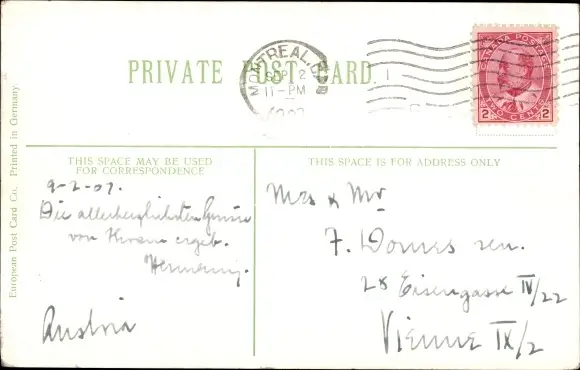 PRIVATE POST CARD.
MONTREAL, P.Q.
SEP 2
11-PM
1907
CANADA POSTAGE
2 TWO CENTS 2
European Post Card Co. Printed in Germany.
THIS SPACE MAY BE USED
FOR CORRESPONDENCE
9-2-07.
Die allerherzlichsten Grüsse
von Ihrem ergeb.
Hermann.
Austria
THIS SPACE IS FOR ADDRESS ONLY
Mrs & Mr
F. Domes sen.
28 Eisengasse IV/22
Vienne IX/2